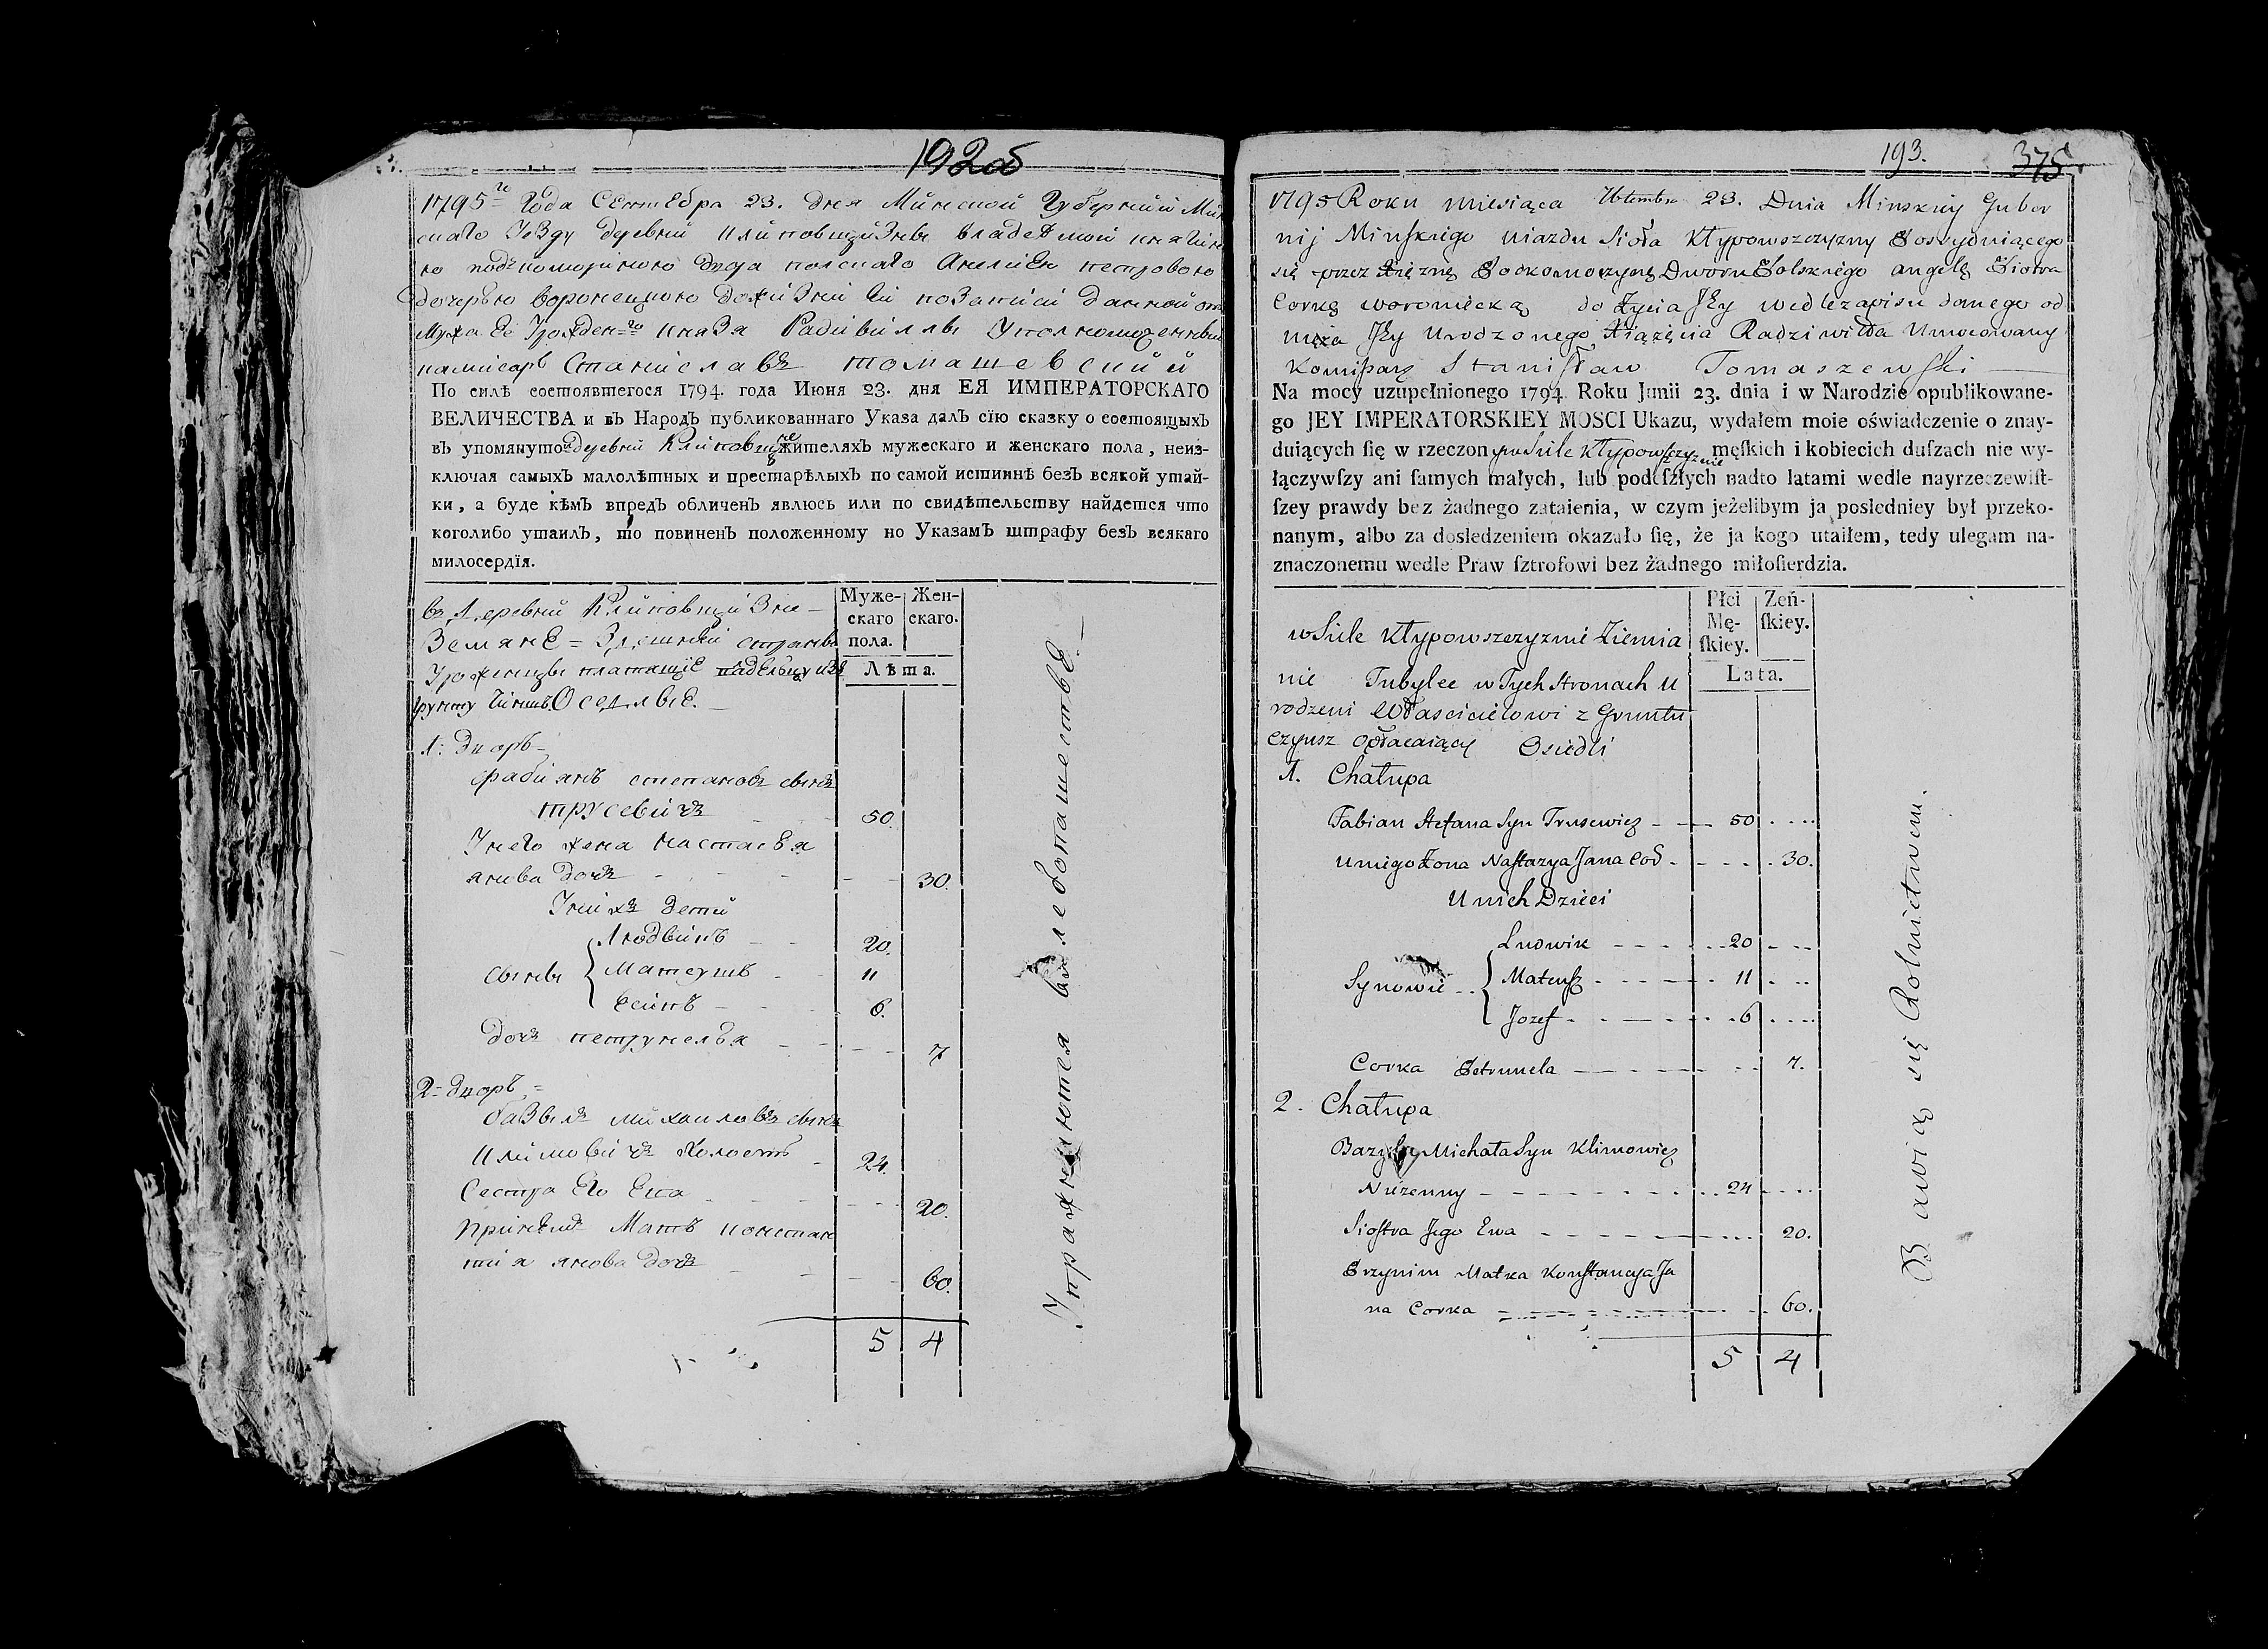 192об
1795го Года Сентебра 23. дня Минской Губернии Мин
скаго Уезду деревни Клиповщизны владемой княгин
ею подкомориною двора полскаго Анелиею петровою
дочерью воронецкою дожизни ей по записи данной от
Мужа Ее Урожден=го князя Радивиллы Уполномоченный
камисарь Станиславъ томашевский
По силѣ состоявшегося 1794. года Июня 23. дня ЕЯ ИМПЕРАТОРСКАГО
ВЕЛИЧЕСТВА и въ Народъ публикованнаго Указа далъ сїю сказку о состоящыхъ
въ упомянутой деревни Клиповщизне жителяхъ мужескаго и женскаго пола, неиз-
ключая самыхъ малолѣтныхъ и престарѣлыхъ по самой истиннѣ безъ всякой утай-
ки, а буде кѣмъ впредъ обличенъ явлюсь или по свидѣтельству найдется что
коголибо утаилъ, то повиненъ положенному по Указамъ штрафу безъ всякаго
милосердїя.
въ Деревни Клиповщизне
Земяне = Здешней страны
Уроженцы платящие владельцу из
грунту чинш. Оседлые.
Муже-
скаго
пола.
Жен-
скаго.
Лѣта.
1: Дворъ
фабиянъ степановъ сынъ
трусевичъ 50.
У него жена настасья
янова дочь 30.
У них дети
сыны
Людвикъ 20.
Матеушъ 11
Есипъ 6.
дочь петрунелья 7
2= дворъ =
базыль михаиловъ сынъ
климовичъ холостъ 24.
Сестра Его Ева 20.
При нем Мать констан
ция янова дочь 60.
5 4
Упражняются хлебопашеством
193.
375
1795 Roku miesiąca 7btembra 23. Dnia Minskiey Guber
nij Minskiego uiazdu Sioła Kłypowszczyzny Possyduiącego
się przez Xiężnę Podkomorzynę Dworu Polskiego angelę Piotra
Corkę woroniecką do Zycia Jey wedle zapisu danego od
męża Jey Urodzonego Xiążęcia Radziwiłła Umocowany
Komisarz Stanisław Tomaszewski
Na mocy uzupełnionego 1794. Roku Junii 23. dnia i w Narodzie opublikowane-
go JEY IMPERATORSKIEY MOSCI Ukazu, wydałem moie oświadczenie o znay-
duiących się w rzeczonym Siele Kłypowszczyznie męskich i kobiecich duszach nie wy-
łączywszy ani samych małych, lub podeszłych nadto latami wedle nayrzeczewist-
szey prawdy bez żadnego zataienia, w czym jeżelibym ja posledniey był przeko-
nanym, albo za dosledzeniem okazało się, że ja kogo utaiłem, tedy ulegam na-
znaczonemu wedle Praw sztrofowi bez żadnego miłosierdzia.
w Siele Kłypowszczyznie Ziemia
nie Tubylce w Tych Stronach u
rodzeni Włascicielowi z Gruntu
czynsz opłacaiący Osiedli
Płci
Mę-
skiey.
Zeń-
skiey.
Lata.
1. Chałupa
Fabian Stefana Syn Trusewicz 50
U niego Zona Nastazya Jana Cor. 30.
U nich Dzieci
Synowie
Ludwik 20
Mateusz 11
Jozef 6
Corka Petrunela 7.
2. Chałupa
Bazyli Michała Syn Klimowicz
Nieżenny 24
Siostra Jego Ewa 20.
Przynim Matka Konstancya Ja
na Corka 60.
5 4
Bawią się Rolnictwem.